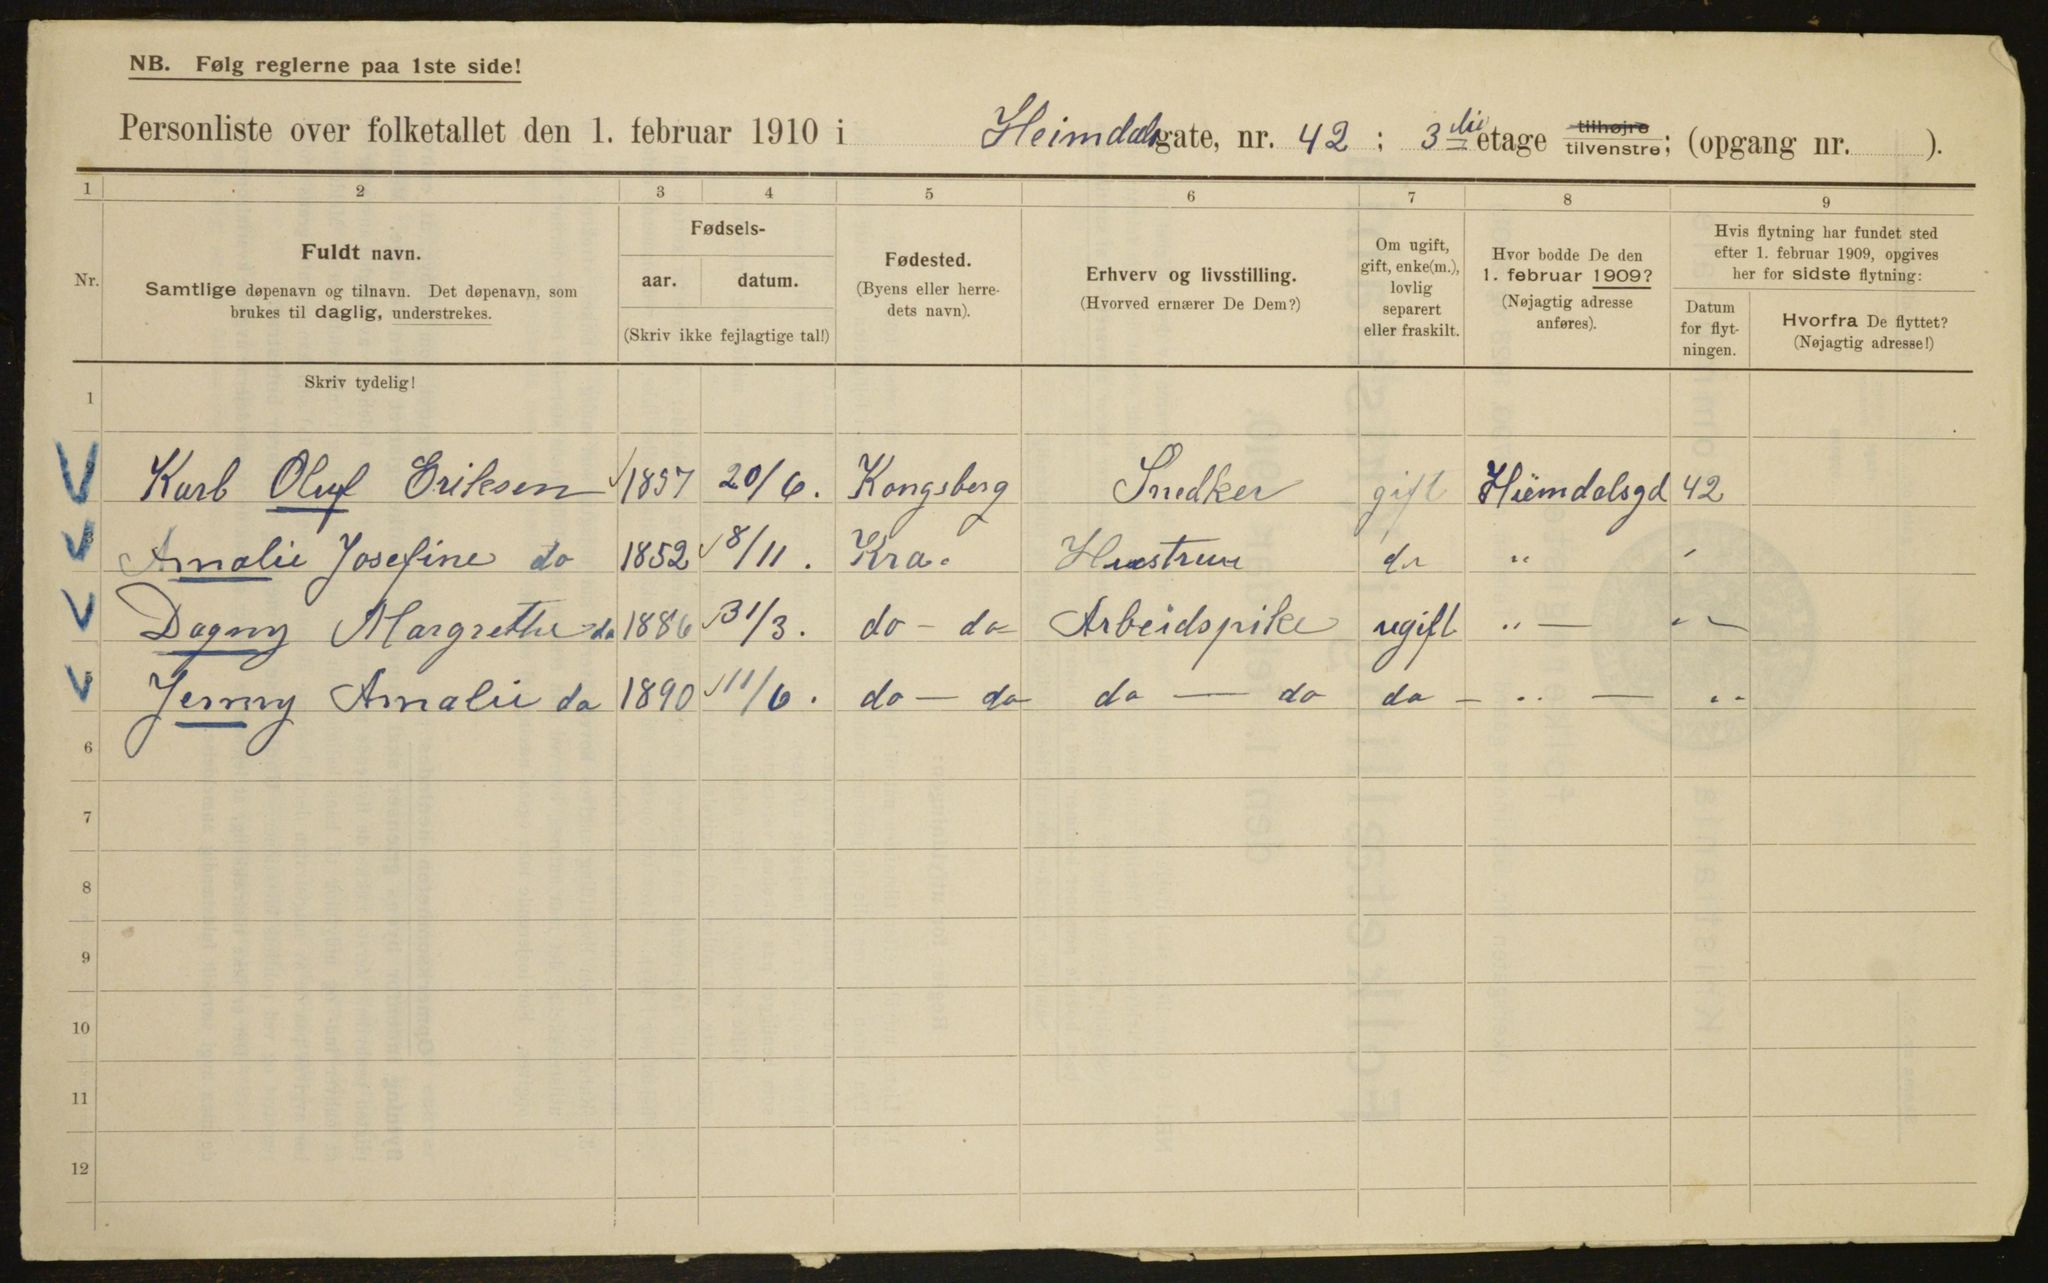 NB. Følg reglerne paa 1ste side!
Personliste over folketallet den 1. februar 1910 i Heimdalsgate, nr. 42 ; 3die etage tilhøjre tilvenstre; (opgang nr. ).
1 2 3 4 5 6 7 8 9
Nr.
Fuldt navn.
Samtlige døpenavn og tilnavn. Det døpenavn, som
brukes til daglig, understrekes.
Fødsels-
aar. datum.
(Skriv ikke fejlagtige tal!)
Fødested.
(Byens eller herre-
dets navn).
Erhverv og livsstilling.
(Hvorved ernærer De Dem?)
Om ugift,
gift, enke(m.),
lovlig
separert
eller fraskilt.
Hvor bodde De den
1. februar 1909?
(Nøjagtig adresse
anføres).
Hvis flytning har fundet sted
efter 1. februar 1909, opgives
her for sidste flytning:
Datum
for flyt-
ningen.
Hvorfra De flyttet?
(Nøjagtig adresse!)
Skriv tydelig!
1
Karl Oluf Eriksen 1857 20/6. Kongsberg Snedker gift Hiemdalsgd 42
Amalie Josefine do 1852 8/11. Kra. Hustrue do " "
Dagny Margrethe do 1886 31/3. do - do Arbeidspike ugift " — "
Jenny Amalie do 1890 11/6. do — do do — do do - " — "
6
7
8
9
10
11
12